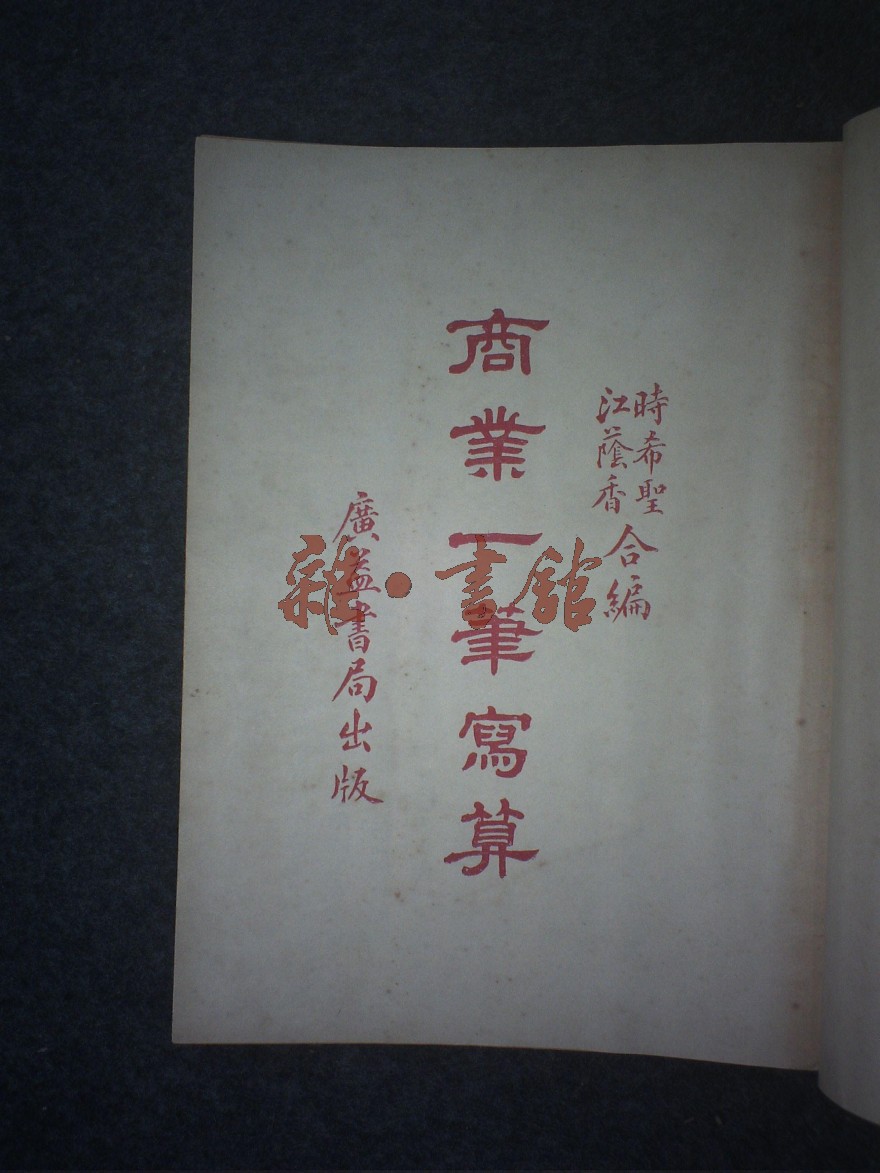 時希聖
江蔭香
合編
商業一筆寫算
廣益書局出版
雜·書館